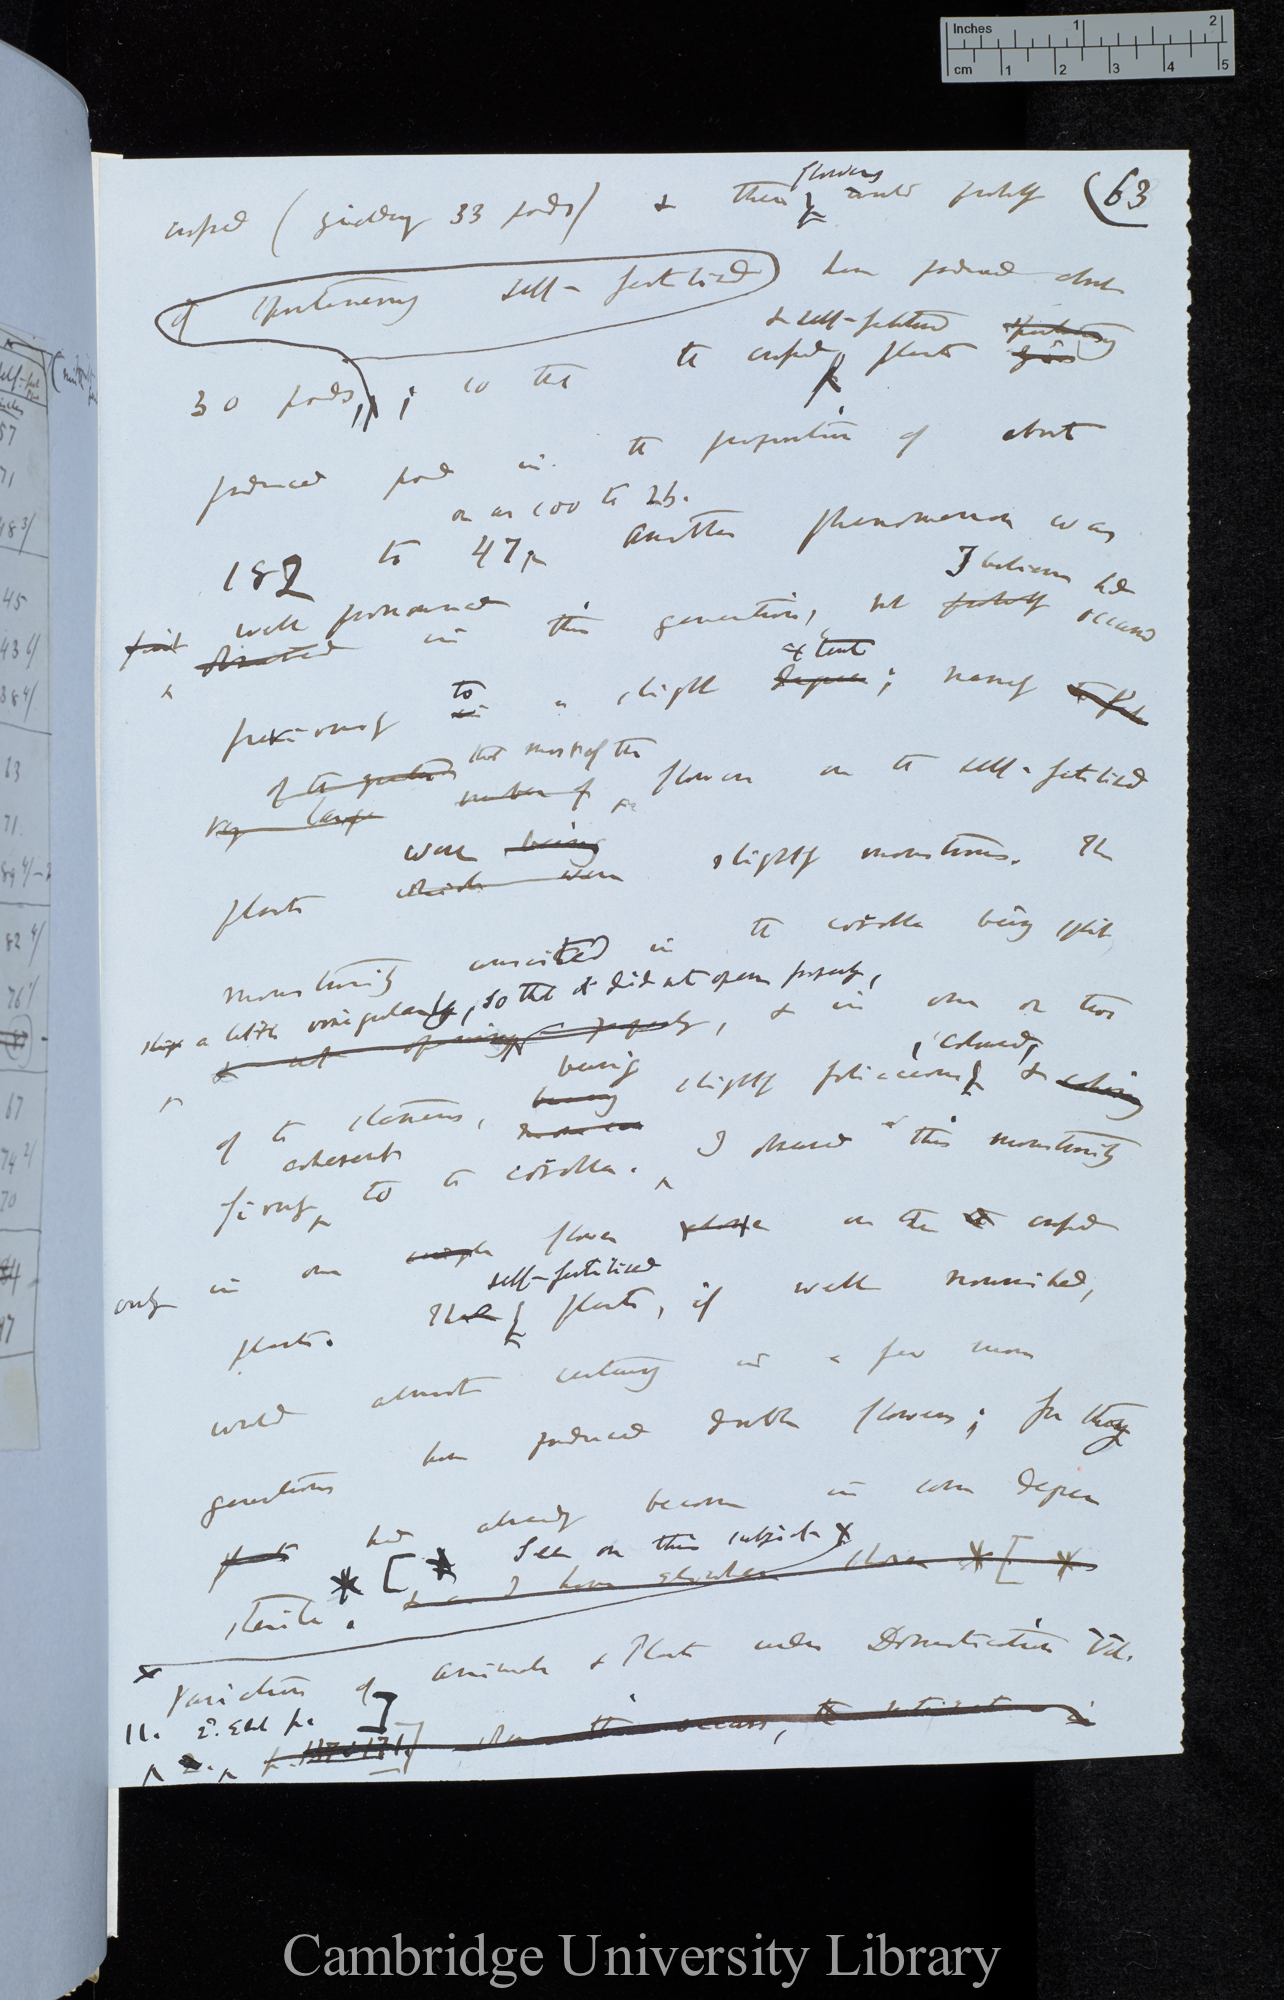 Inches 1 2
cm 1 2 3 4 5
(63
flowers
crossed (yielding 33 pods) & these would probably
if spontaneously self-fertilised have produced about
& self-fertilised
30 pods; so that the crossed plants
produced pods in the proportion of about
or as 100 to 26.
182 to 47. Another phenomenon was
I believe had
well pronounced in this generation, but probably occurred
extent
previously to a slight degree; namely
that most of the
very large number of flowers on the self-fertilised
were being
plants which were slightly monstrous. The
monstrosity consisted in the corolla being split
a little irregularly, so that it did not open properly,
& not opening properly, & in one or two
being coloured,
of the stamens, slightly foliaceous, &
coherent
firmly to the corolla. I observed this monstrosity
only in one single flower on the crossed
self-fertilised
plants. The plants, if well nourished,
would almost certainly in a few more
generations have produced double flowers; for they
plants had already become in some degree
See on this subject x
sterile. * [ * as I have elsewhere shown * [ *
x Variation of Animals & Plants under Domestication Vol.
II. 2. Edit p. ]
when this occurs,
57
71
45
63
71
67
70
Cambridge University Library